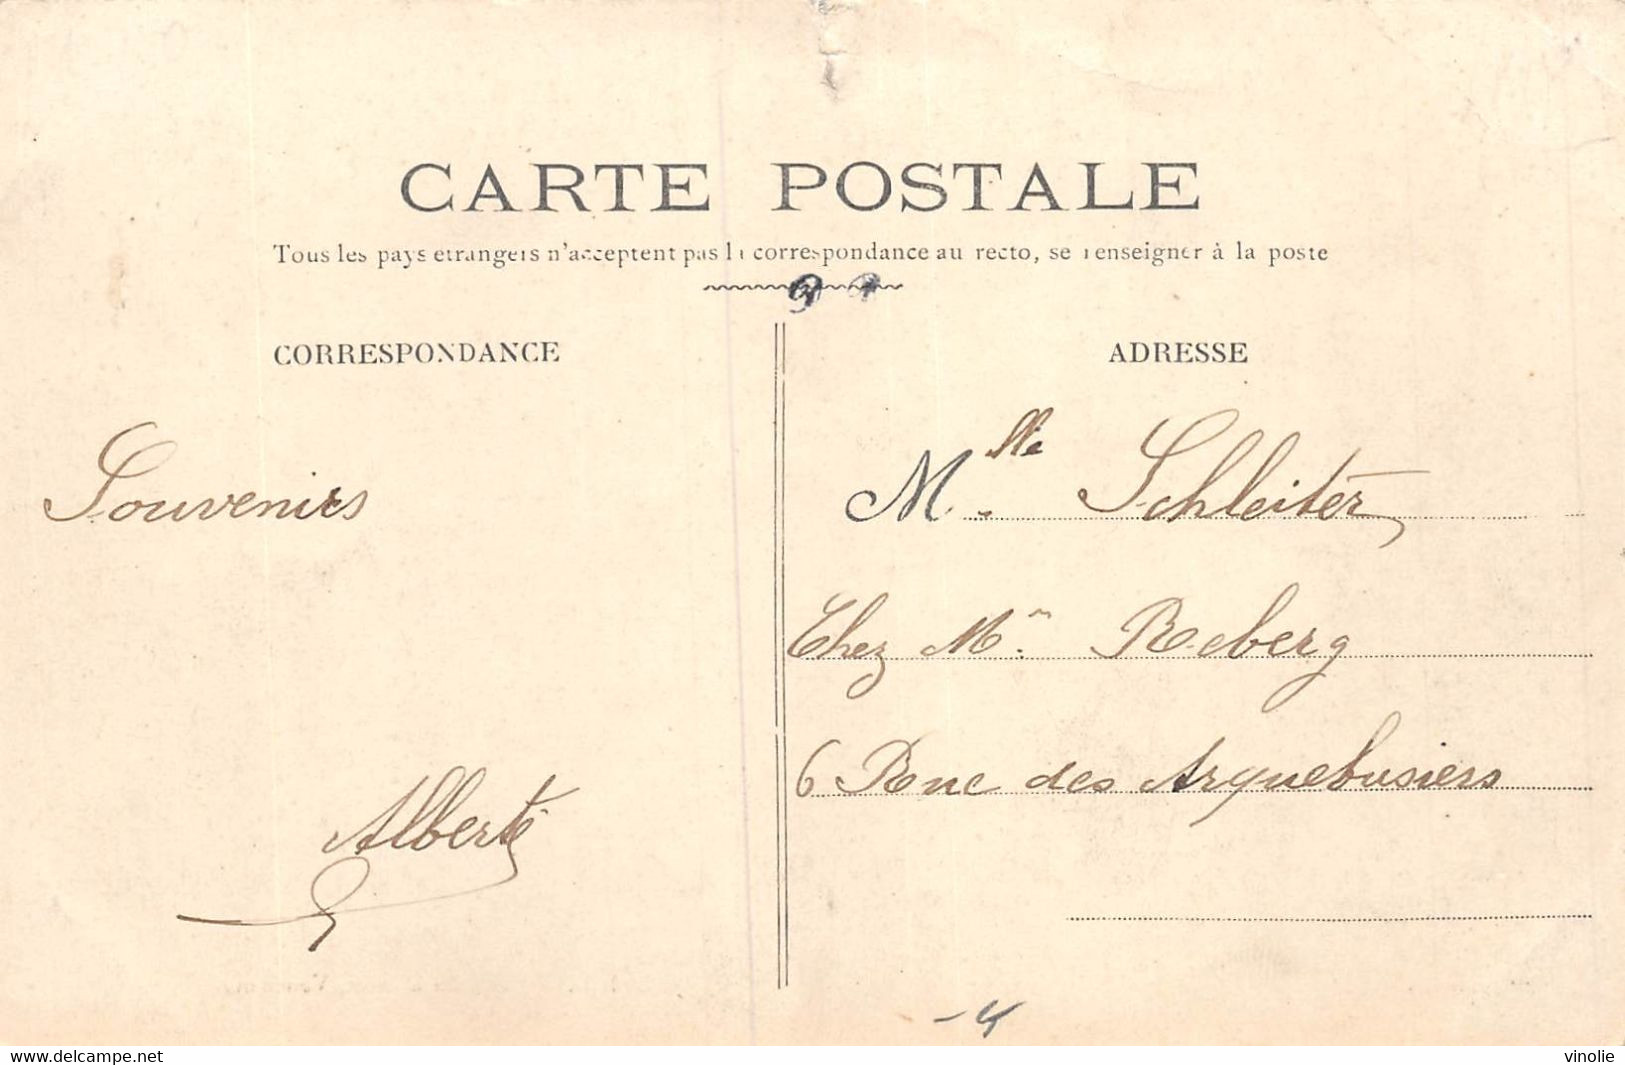 CARTE POSTALE
Tous les pays etrangers n'acceptent pas la correspondance au recto, se renseigner à la poste
CORRESPONDANCE
ADRESSE
Souvenirs
Albert
Mlle Schleiter
Chez Mr. Reberg
6 Rue des Arquebusiers
-4
www.delcampe.net
vinolie